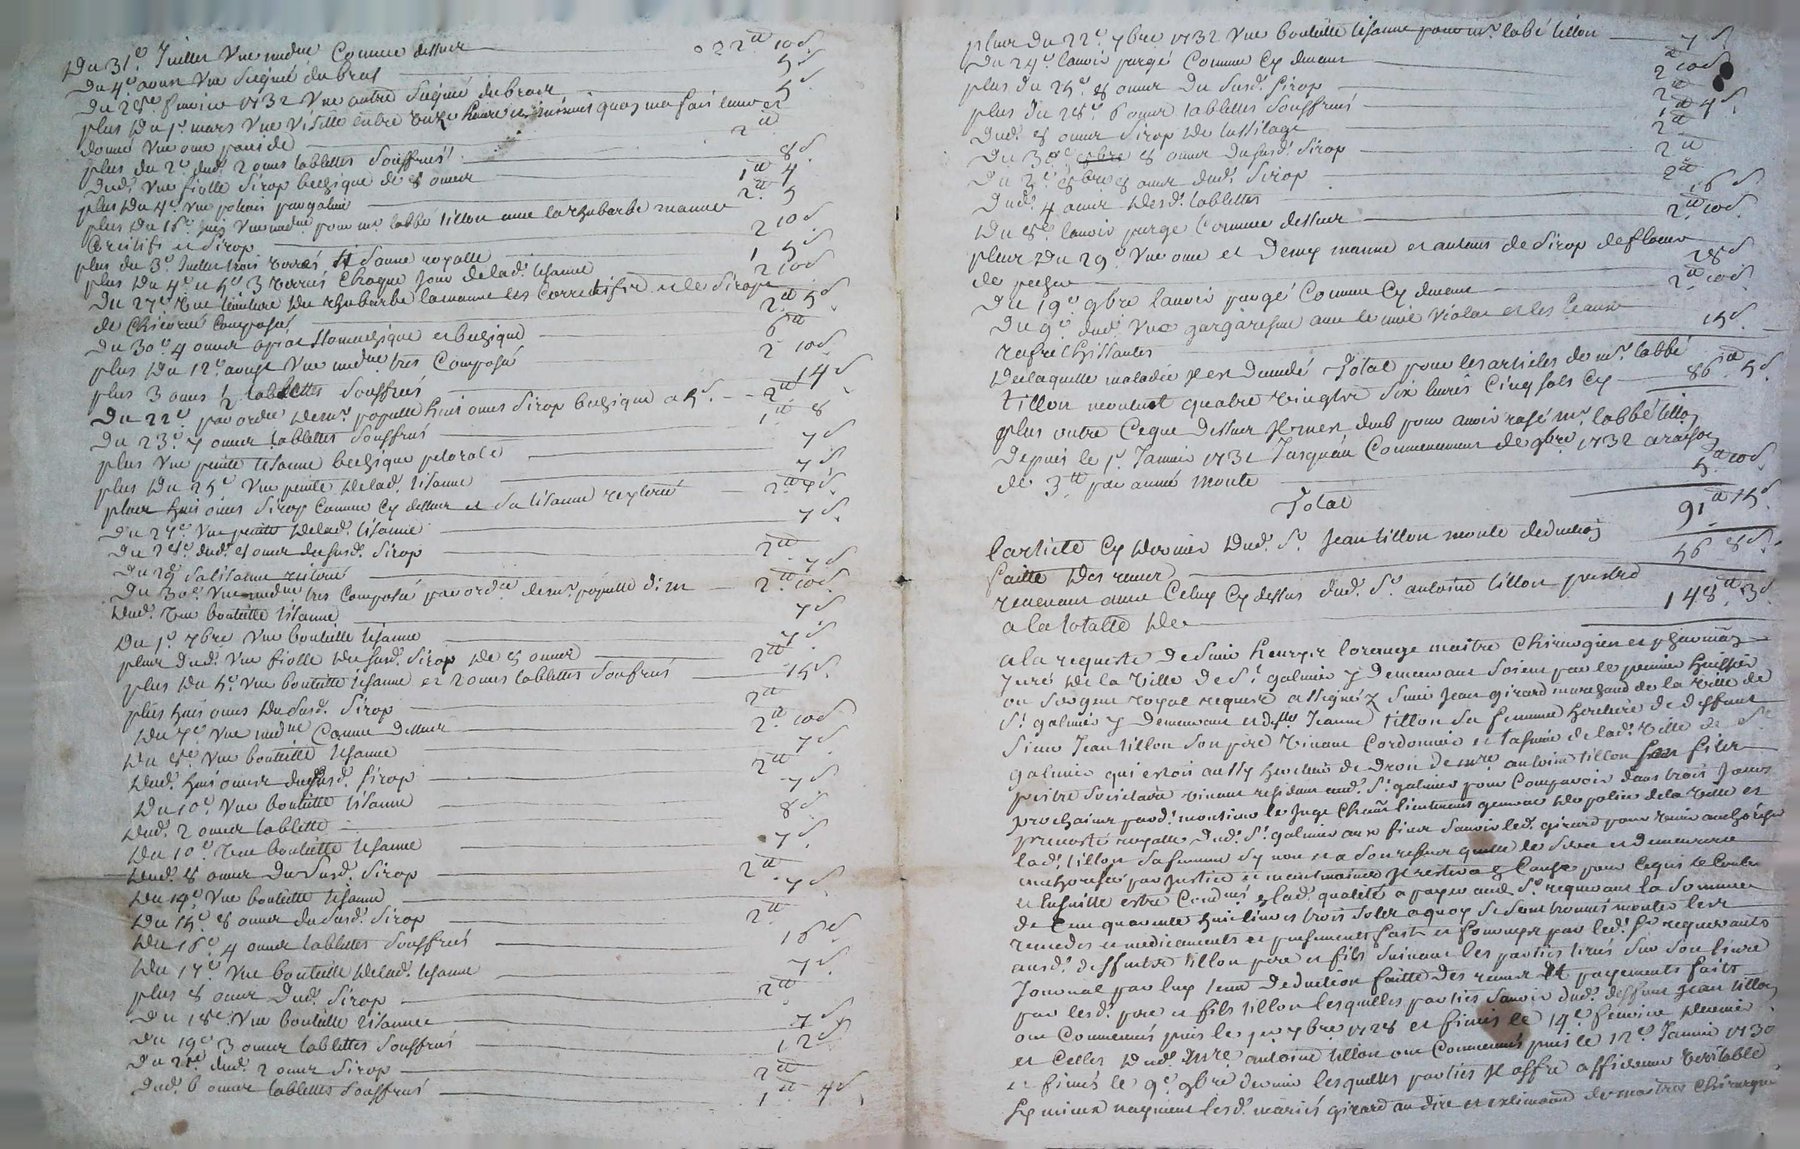 Du 31e Juillet Vne medne Comme dessus 2tt 10s
Du 4e aoust Vne Saignée du bras 5s
Du 28me feurier 1732 Vne autre Saignée du bras 5s
plus Du 1r mars Vne Visitte entre onze heure et minuit quoy ma fait leuer et
donné Vne once 2tt
plus du 2e dud. 2 onces tablettes Souffrées 8s
Dud. Vne fiolle Sirop bechique de 8 onces 1tt 4
plus Du 4e Vne potion purgatiue 2tt 5
plus Du 16e Vne medne pour mr labbé tillon auec la rhubarbe manne
Corectifs et Sirop 2 10s
plus du 3e Juillet trois verrées tisanne royalle 1 5s
plus Du 4e et 5e 3 verrées Chaque Jour de lad. tisanne 2 10s
Du 27e Vne teinture de rhubarbe la manne les Correctifs et le Sirop
de Chicorée Composé 2tt 5s
Du 30e 4 onces opiat Stomachique et bechique 6tt
plus Du 12e aoust Vne medne tres Composé 2 10s
plus 3 onces ½ tablettes Souffrées 14s
Du 22e par ordre de mr populle huit onces Sirop bechique a 5s 2tt
Du 23e 7 onces tablettes Souffrées 1tt 8
plus Vne peinte tisanne bechique pectorale 7s
plus Du 25e Vne peinte de lad. tisanne 7s
plus huit onces Sirop Comme Cy dessus et Sa tisanne reyterée 2tt 7s
Du 27e Vne peinte de lad. tisanne 7s
Du 28e dud. 8 onces du susd. Sirop 2tt
Du 29 Sa tisanne reiterée 7s
Du 30e Vne medne tres Composée par ordre de mr populle 2tt 10s
Dud. Vne bouteille tisanne 7s
Du 1e 7bre Vne bouteille tisanne 7s
plus dud. Vne fiolle du susd. Sirop de 8 onces 2tt
plus Du 5e Vne bouteille tisanne et 2 onces tablettes Soufrées 15s
plus huit onces du susd. Sirop 2tt
Du 7e Vne medne Comme Dessus 2tt 10s
Du 8e Vne bouteille tisanne 7s
Dud. huit onces du susd. Sirop 2tt
Du 10e Vne bouteille tisanne 7s
Dud. 2 onces tablette 8s
Du 10e Vne bouteille tisanne 7s
Dud. 8 onces Du Susd. Sirop 2tt
Du 14e Vne bouteille tisanne 7s
Du 15e 8 onces du susd. Sirop 2tt
Du 16e 4 onces tablettes Souffrées 16s
Du 17e Vne bouteille de lad. tisanne 7s
plus 8 onces Dud. Sirop 2tt
Du 18e Vne bouteille tisanne 7s
Du 19e 3 onces tablettes Souffrées 12s
Du 21e dud. 2 onces Sirop 2tt
Dud. 6 onces tablettes Souffrées 1tt 4s
plus Du 22e 7bre 1732 Vne bouteille tisanne pour mr labé tillon 7s
Du 24e lauoir purgé Comme Cy deuant 2tt 10s
plus du 25e 8 onces Du Susd. Sirop 2tt
plus du 28e 6 onces tablettes Souffrées 1tt 4s
Dud. 8 onces Sirop de tussilage 2tt
Du 30e 8 onces Du susd. Sirop 2tt
Du 2e 8bre 8 onces dud. Sirop 2tt
Dud. 4 onces Desd. tablettes 16s
Du 8e lauoir purgé Comme dessus 2tt 10s
plus Du 29e Vne once et Demy manne et autant de Sirop de fleurs
de pecher 28s
Du 19e 9bre lauoir purgé Comme Cy deuant 2tt 10s
Du 9e dud. Vne gargarisme auec le miel Violat et les Eaux
rafrechissantes 15s
De laquelle maladie Il est Decedé Total pour les articles de mr labbé
tillon montent quatre Vingts Six liures Cinq sols Cy 86tt 5s
plus outre Ce que Dessus Il m'est deub pour auoir rasé mr labbé tillon
Depuis le 1r Januier 1731 Jusquau Commencement de 9bre 1732 a raison
de 3tt par année monte 5tt 10s
Total 91tt 15s
larticle Cy Dernier Dud. Sr Jean tillon monte deduction
faitte des receus 56 8s
reuenant auec Celuy Cy dessus dud. Sr antoine tillon prestre
a la totalle de 148tt 3s
a la requeste De Sieur henry lorange maitre Chirurgien et pharmacien
Juré de la Ville de St galmier y Demeurant Soient par le premier huissier
ou Sergent royal requis assignéz Sieur Jean girard marchand de la Ville de
St galmier y Demeurant et Dlle Jeanne tillon Sa femme heritiere de deffunt
Sieur Jean tillon Son pere Viuant Cordonnier et tafineur de lad. Ville de St
galmier qui estoit aussy heritier de Droit de mre antoine tillon Son fils
prestre Societaire Viuant residant aud. St galmier pour Comparoir dans trois Jours
prochains pard. monsieur le Juge Chatn lieutenant general de police de la Ville et
preuosté royalle Dud. St galmier aux fins Sauoir led. girard pour Venir authoriser
lad. tillon Sa femme Sy non et a Son refus quelle le Sera et Demeurera
authorisée par Justice et maintenant
et Ensuitte estre Condamnés esd. qualités a payer aud. Sr requerant la Somme
de Cent quarante huit liures trois Sols a quoy Se Sont trouués monter les
remedes et medicaments et pensements faits et fournis par led. Sr requerant
ausd. deffunts tillon pere et fils Suiuant les parties tirés Sur Son liure
Journal par luy tenu Deduction faitte des receus et payements faits
par lesd. pere et fils tillon lesquelles parties Sauoir dud. deffunt Jean tillon
ont Commencés puis le 1er 7bre 1728 et finis le 14e feurier dernier
et Celles dud. mre antoine tillon ont Commencés puis le 12e Januier 1730
et finies le 9e 9bre dernier lesquelles parties Il offre affirmer Veritable
Sy mieux nayment lesd. mariés girard au dire et estimation de maitres Chirurgiens